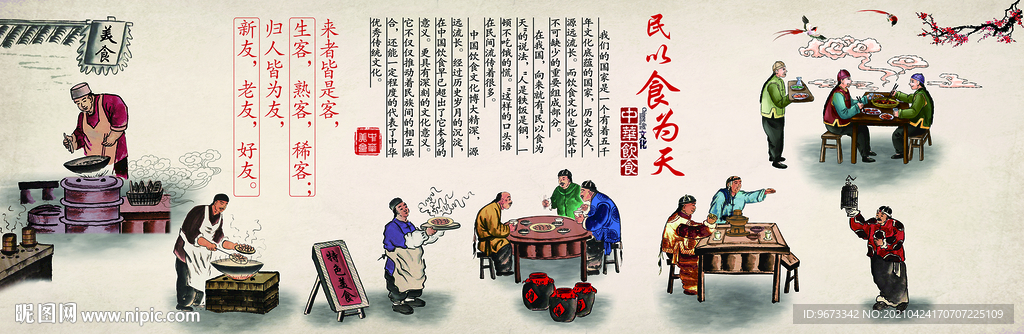 民以食为天
中華飲食
文化
我们的国家是一个有着五千
年文化底蕴的国家，历史悠久，
源远流长。而饮食文化也是其中
不可缺少的重要组成部分。
在我国，向来就有“民以食为
天”的说法，“人是铁饭是钢，一
顿不吃饿的慌。”这样的口头语
在民间流传着很多。
中国饮食文化博大精深，源
远流长。经过历史岁月的沉淀，
在中国饮食早已超出了它本身的
意义。更具有深刻的文化意义。
它不仅仅推动着民族间的相互融
合，还能一定程度的代表了中华
优秀传统文化。
中华
美食
来者皆是客，
生客，熟客，稀客；
归人皆为友，
新友，老友，好友。
美食
特色美食
昵图网 www.nipic.com
ID:9673342 NO:20210424170707225109